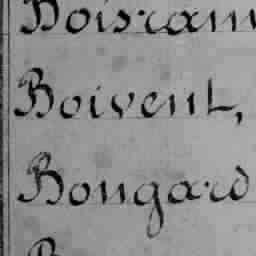 Boisram
Boivent,
Bongard